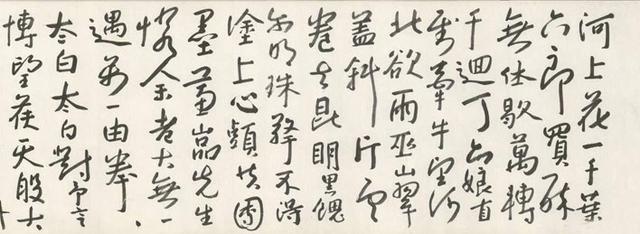 河上花一千葉
六郎買醉
無休歇萬轉
千迴丁六娘直
到牽牛望河
北欲雨巫山翠
蓋斜片雲
卷去昆明黑饋
尔明珠擎不得
塗上心頭共團
墨蕙嵒先生
憐余老大無一
遇万一由拳、
太白太白對予言
博望侯天般大